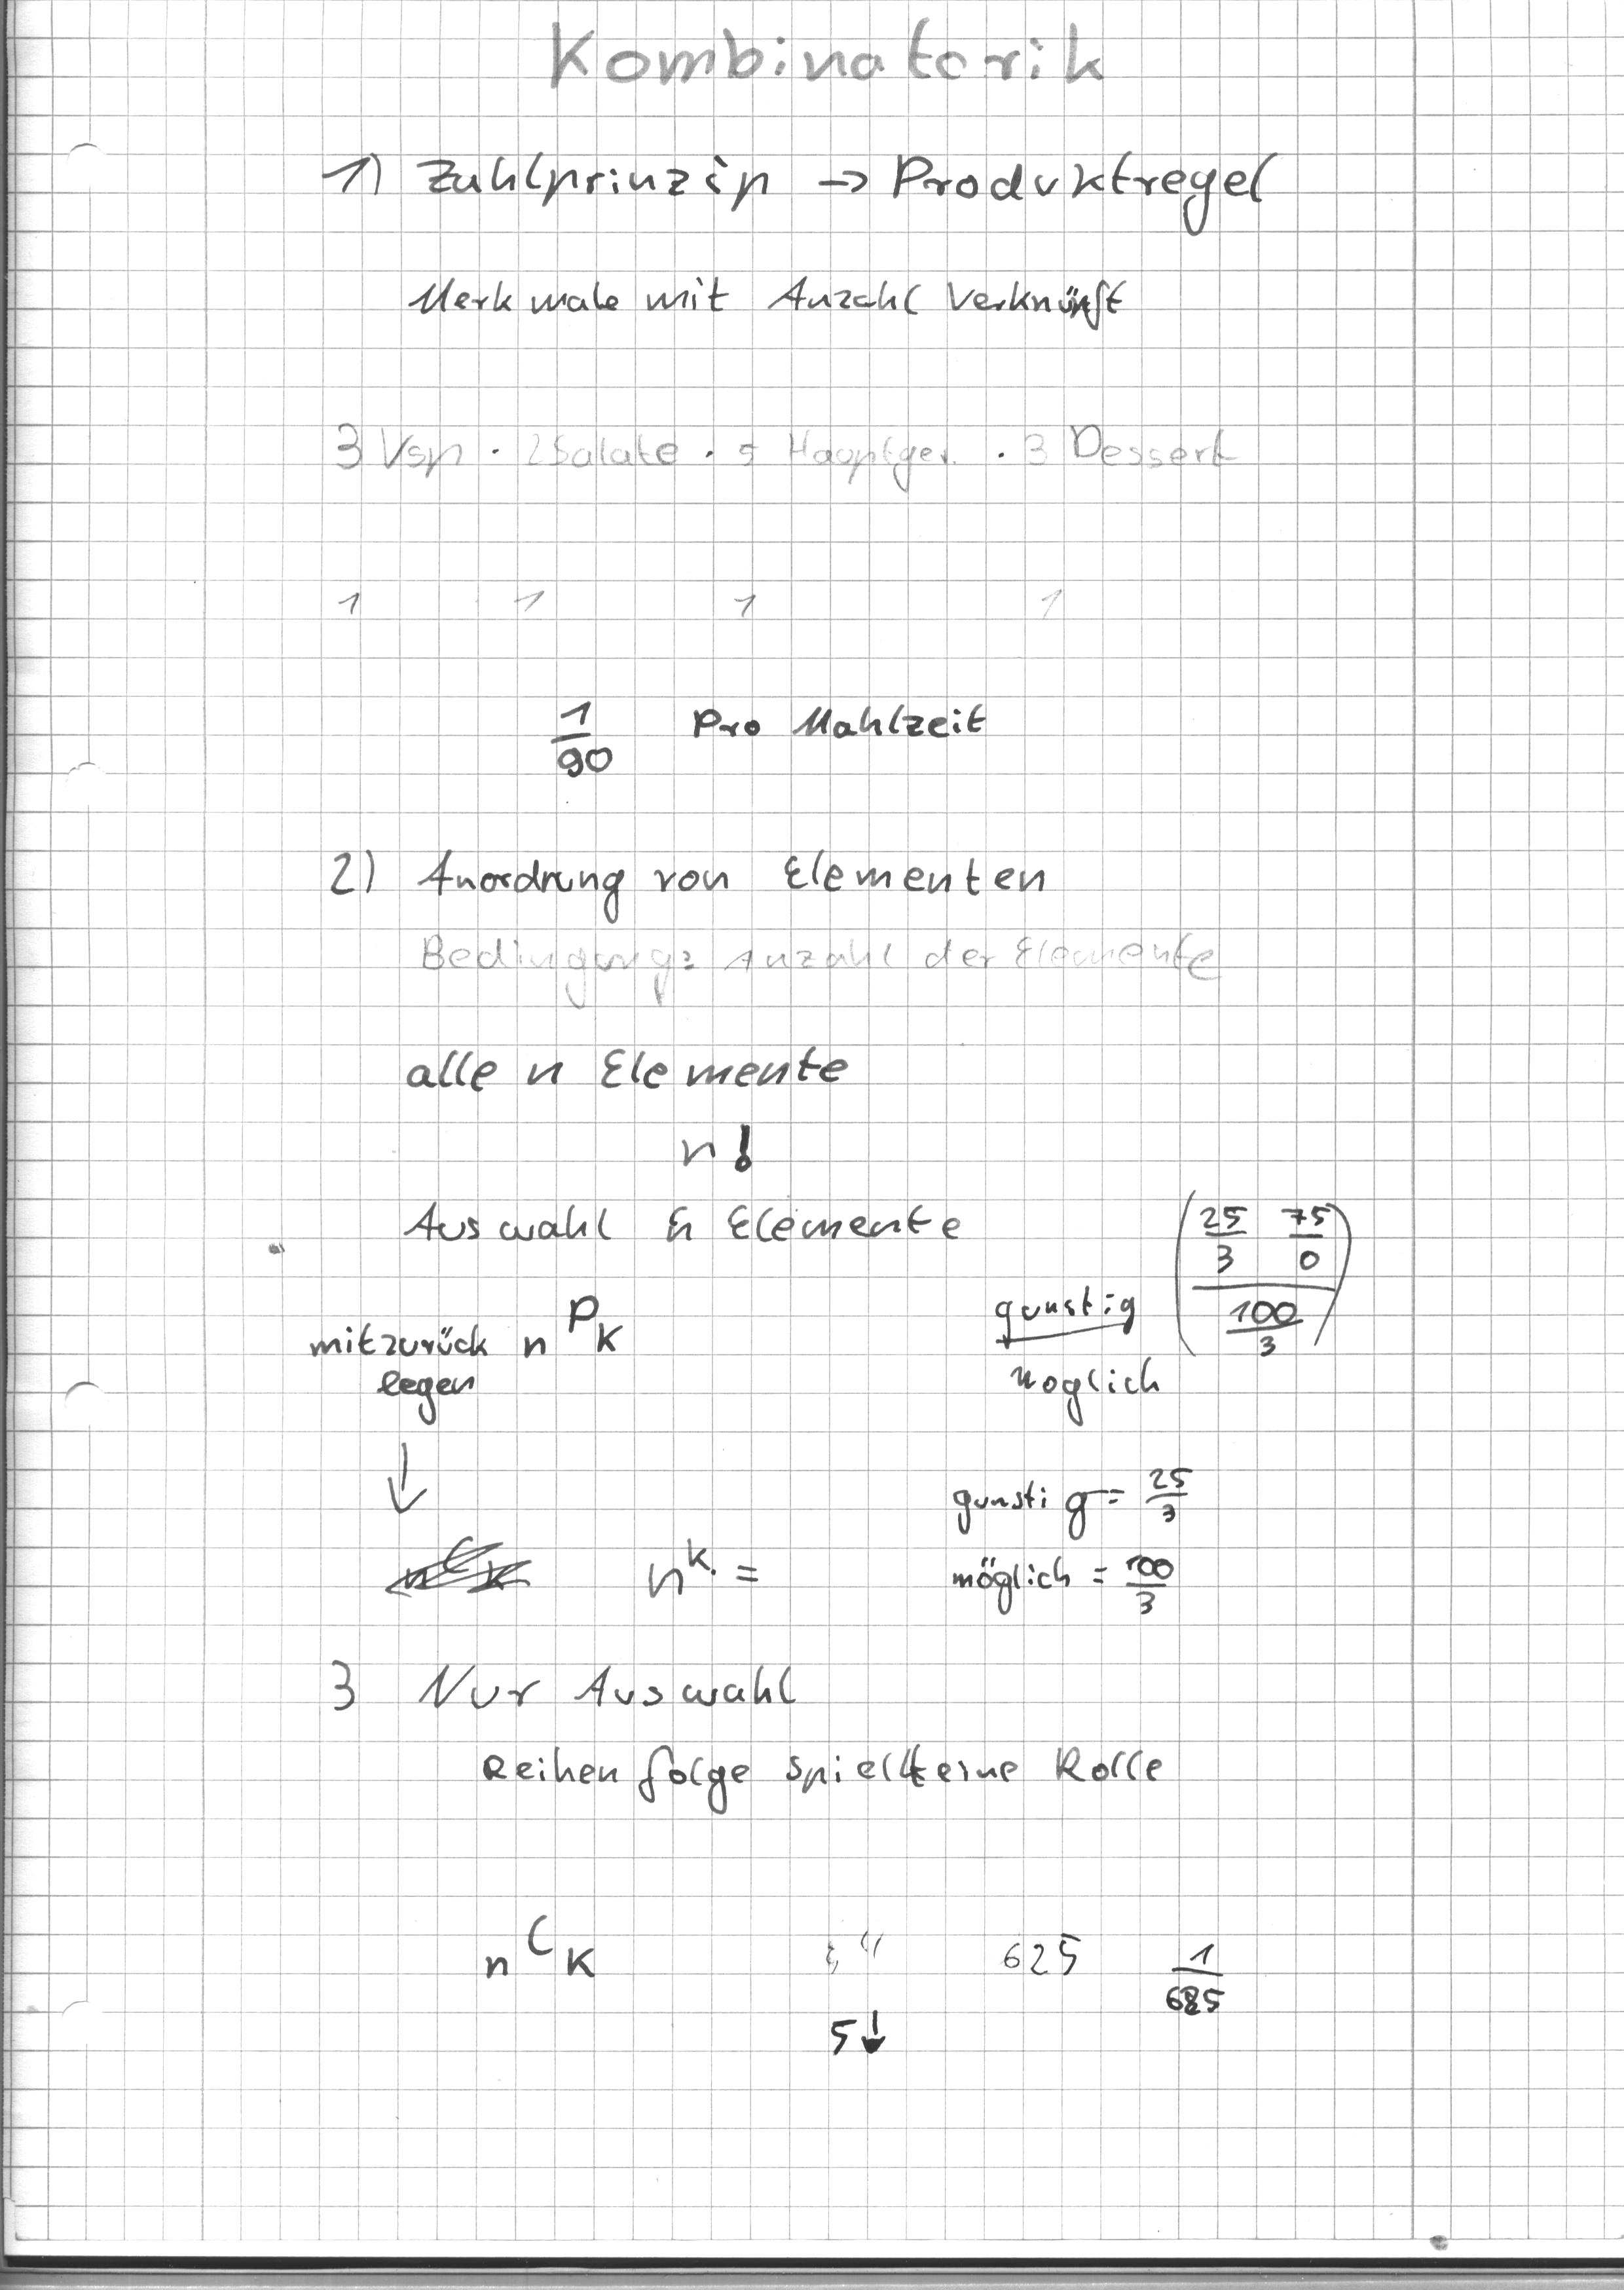 Kombinatorik
1) Zahlprinzip → Produktregel
Merkmale mit Anzahl Verknünft
3 Vsp · 2 Salate · 5 Hauptger. · 3 Dessert
1 1 1 1
1/90 Pro Mahlzeit
2) Anordnung von Elementen
Bedingung: Anzahl der Elemente
alle n Elemente
n!
Auswahl Elemente
mit zurück legen
n P K
gunstig / moglich
(25/3 75/0 / 100/3)
↓
n^k =
gunstig = 25/3
möglich = 100/3
3 Nur Auswahl
Reihenfolge spielt keine Rolle
n C K
625 1/685
5↓